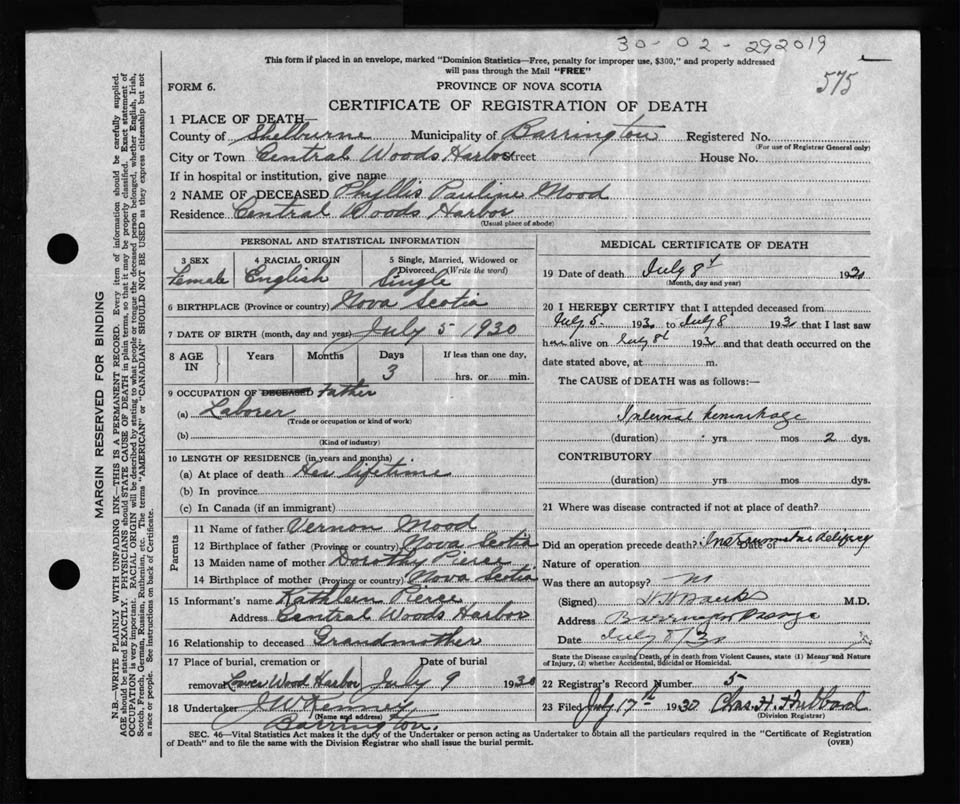 30-02-292019
575
This form if placed in an envelope, marked "Dominion Statistics—Free, penalty for improper use, $300," and properly addressed
will pass through the Mail "FREE"
FORM 6.
PROVINCE OF NOVA SCOTIA
CERTIFICATE OF REGISTRATION OF DEATH
1 PLACE OF DEATH—
County of Shelburne Municipality of Barrington Registered No.
(For use of Registrar General only)
City or Town Central Woods Harbor Street House No.
If in hospital or institution, give name
2 NAME OF DECEASED Phyllis Pauline Mood
Residence Central Woods Harbor
(Usual place of abode)
PERSONAL AND STATISTICAL INFORMATION
3 SEX 4 RACIAL ORIGIN 5 Single, Married, Widowed or
Divorced. (Write the word)
Female English Single
6 BIRTHPLACE (Province or country) Nova Scotia
7 DATE OF BIRTH (month, day and year) July 5 1930
8 AGE IN Years Months Days If less than one day,
3 hrs. or min.
9 OCCUPATION OF DECEASED Father
(a) Laborer
(Trade or occupation or kind of work)
(b)
(Kind of industry)
10 LENGTH OF RESIDENCE (in years and months)
(a) At place of death Her lifetime
(b) In province
(c) In Canada (if an immigrant)
Parents
11 Name of father Vernon Mood
12 Birthplace of father (Province or country) Nova Scotia
13 Maiden name of mother Dorothy Pierce
14 Birthplace of mother (Province or country) Nova Scotia
15 Informant's name Kathleen Pierce
Address Central Woods Harbor
16 Relationship to deceased Grandmother
17 Place of burial, cremation or Date of burial
removal Lower Wood Harbor July 9 1930
18 Undertaker J W Kenney
(Name and address)
Barrington
MEDICAL CERTIFICATE OF DEATH
19 Date of death July 8th 1930
(Month, day and year)
20 I HEREBY CERTIFY that I attended deceased from
July 5 1930 to July 8 1930 that I last saw
her alive on July 8th 1930 and that death occurred on the
date stated above, at m.
The CAUSE of DEATH was as follows:—
Internal hemorrhage
(duration) yrs mos 2 dys.
CONTRIBUTORY
(duration) yrs. mos. dys.
21 Where was disease contracted if not at place of death?
Did an operation precede death? Date of Instrumental delivery
Nature of operation
Was there an autopsy? no
(Signed) Banks M.D.
Address Barrington Passage
Date July 8/30
State the Disease causing Death, or in death from Violent Causes, state (1) Means and Nature
of Injury, (2) whether Accidental, Suicidal or Homicidal.
22 Registrar's Record Number 5
23 Filed July 17th 1930 Chas. H. Hubbard
(Division Registrar)
SEC. 46—Vital Statistics Act makes it the duty of the Undertaker or person acting as Undertaker to obtain all the particulars required in the "Certificate of Registration
of Death" and to file the same with the Division Registrar who shall issue the burial permit.
(OVER)
MARGIN RESERVED FOR BINDING
N.B.—WRITE PLAINLY WITH UNFADING INK—THIS IS A PERMANENT RECORD. Every item of information should be carefully supplied.
AGE should be stated EXACTLY. PHYSICIANS should STATE CAUSE OF DEATH in plain terms, so that it may be properly classified. Exact statement of
OCCUPATION is very important. RACIAL ORIGIN will be described by stating to what people or tongue the deceased person belonged, whether English, Irish,
Scotch, French, German, Russian, Ruthenian, etc. The terms "AMERICAN" or "CANADIAN" SHOULD NOT BE USED as they express citizenship but not
a race or people. See instructions on back of Certificate.